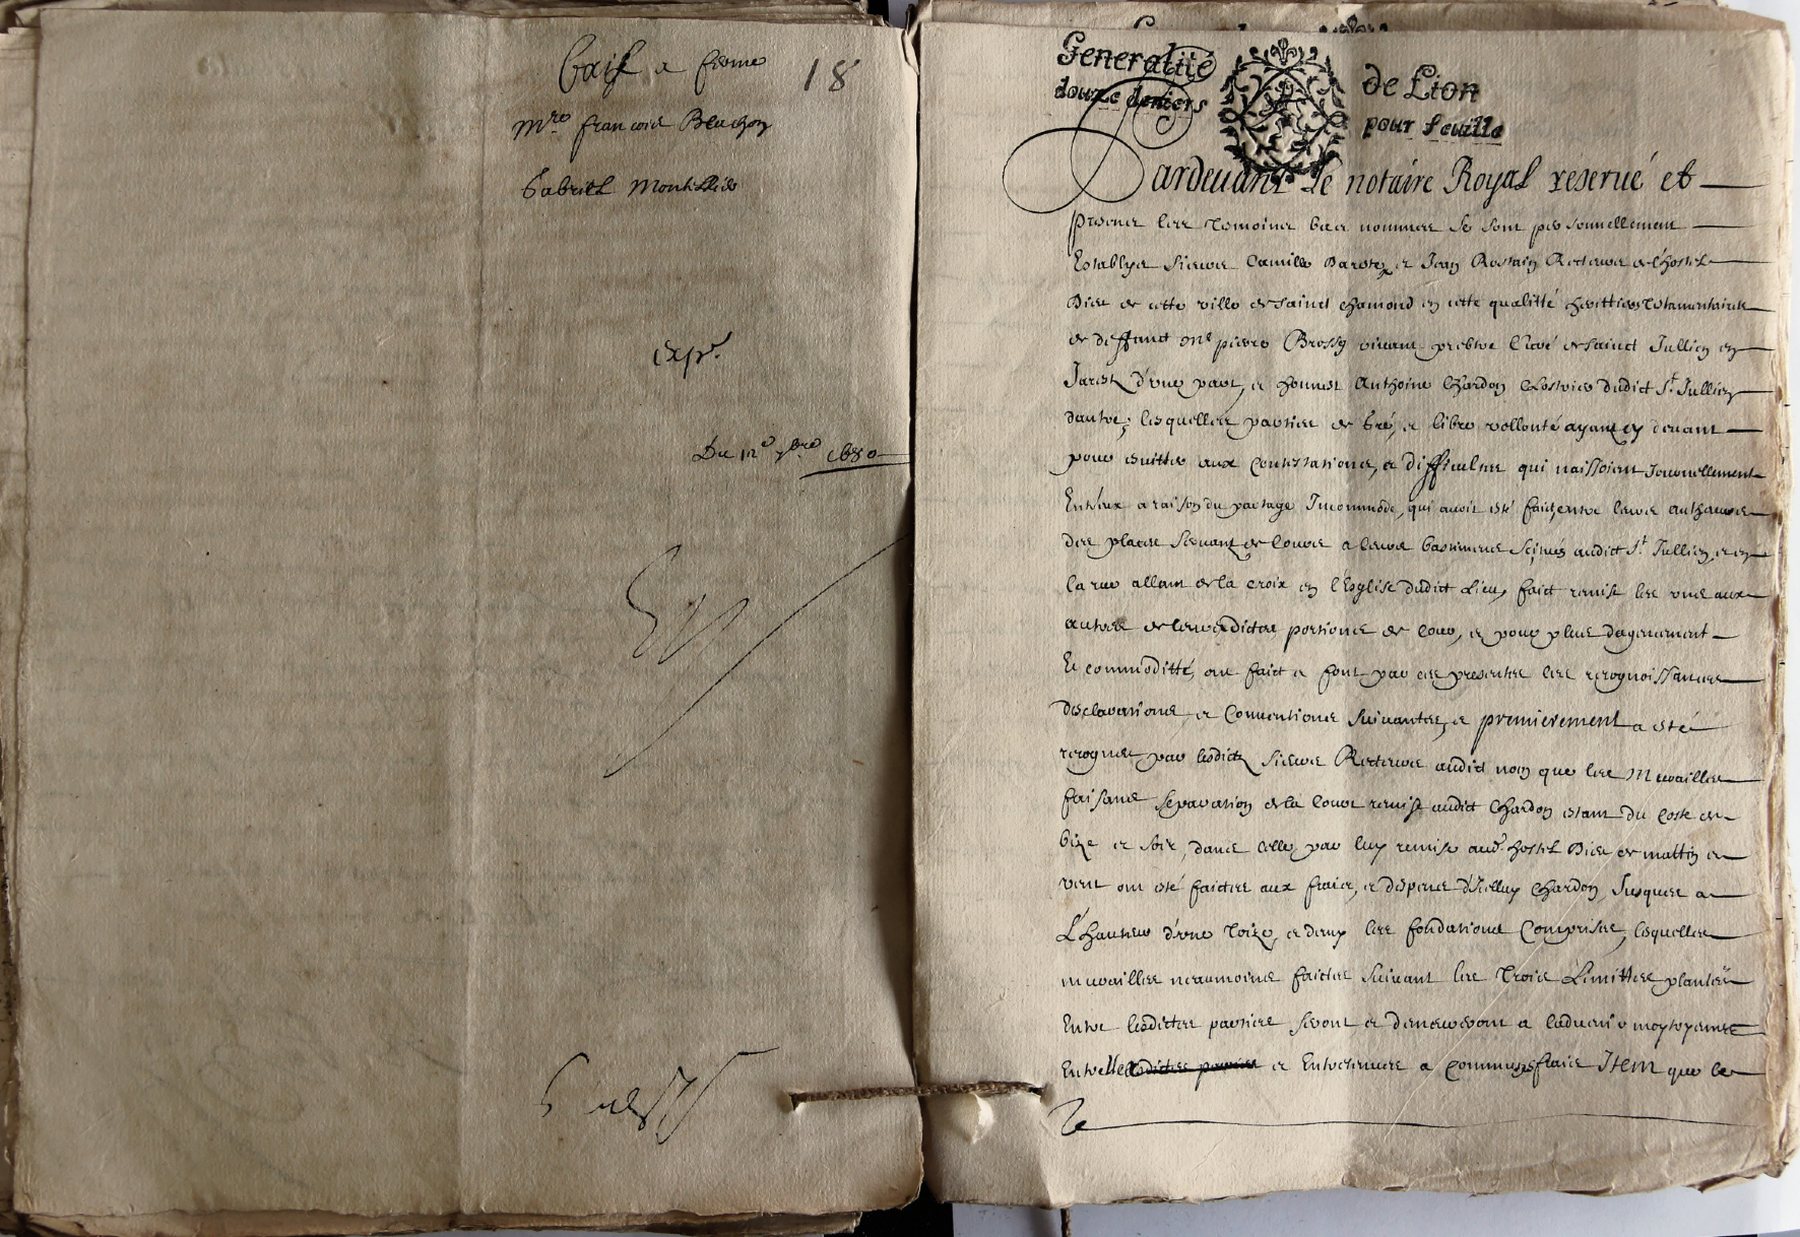 Bail a ferme
18
Mre francois Beuchon
Gabriel
expé.
Du 12e 7bre 1680
Generalité de Lion
douze deniers pour feuille
Pardevant Le notaire Royal reservé et
presens les tesmoins bas nommes se sont personnellement
Establys sieurs Camille et Jean Rostaing Recteurs de l'hostel
Dieu de cette ville de Sainct chamond en cette qualitté heritiers testamentaires
de deffunct Mre pierre Brossy vivant prebtre Curé de Sainct Jullien en
Jarest d'une part, et honnest Anthoine Chardon Clostrier dudict St. Jullien
dautre; lesquelles parties de gré, et libre vollonté ayant cy devant
pour esvitter aux Contestations, et difficultes qui naissoient Journellement
Entr'eux a raison du partage Incommode, qui avoit esté faict, entre leurs autheurs
des places servant de Cours a leurs bastimens scitués audict St. Jullien, et en
la rue allant de la croix en l'Esglise dudict Lieu, faict remise les uns aux
autres de leursdictes portions de Cour, et pour plus dagencement
Et commoditté, ont faict et font par ces presentes les recognoissances
desclarations, et Conventions suivantes, et premierement a esté
recogneu par lesdicts sieurs Recteurs audict nom que les Murailles
faisans separation de la Court remise audict Chardon estant du Costé de
bize et soir, dans Celle par luy remise aud. hostel Dieu de mattin et
vent ont esté faictes aux frais, et despens d'Icelluy Chardon, Jusques a
L'hauteur d'une toize, et demy les fondations Comprises, lesquelles
murailles neanmoins faictes suivant les trois Limittes plantées
Entre lesdictes parties seront et demeureront a ladvenir moytoyennes
Entrelles lesdictes parties et Entretenues a Communs fraics Item que le